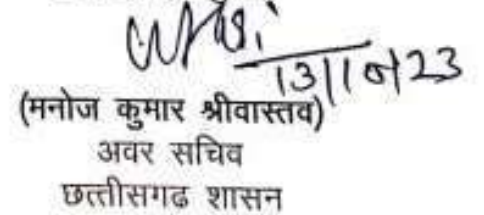 13/10/23
(मनोज कुमार श्रीवास्तव)
अवर सचिव
छत्तीसगढ शासन